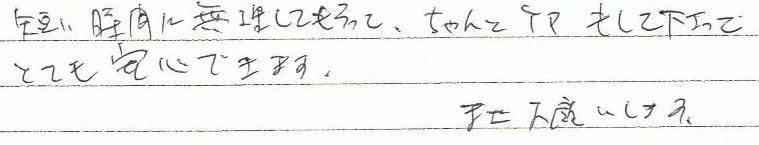 短い時間に無理してもらって、ちゃんとケアもして下さって
とても安心できます。
またお願いします。